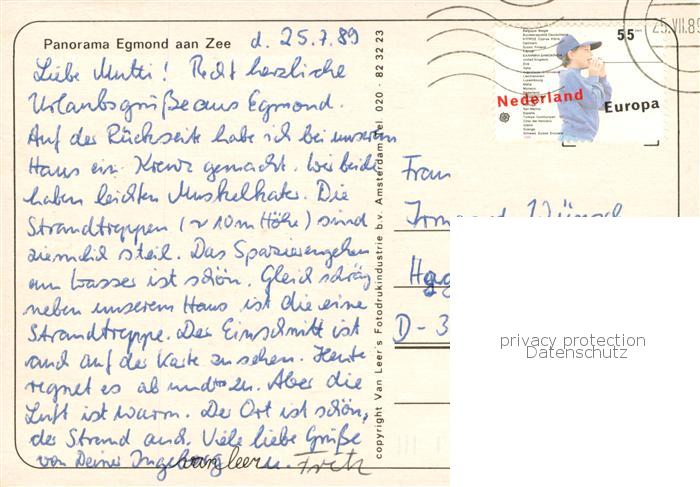 Panorama Egmond aan Zee d. 25.7.89
Liebe Mutti! Recht herzliche
Urlaubsgrüße aus Egmond.
Auf der Rückseite habe ich bei unserem
Haus ein Kreuz gemacht. Wir beide
haben leichten Muskelkater. Die
Strandtreppen (~ 10 m Höhe) sind
ziemlich steil. Das Spazierengehen
am Wasser ist schön. Gleich schräg
neben unserem Haus ist die eine
Strandtreppe. Der Einschnitt ist
auch auf der Karte zu sehen. Heute
regnet es ab und zu. Aber die
Luft ist warm. Der Ort ist schön,
der Strand auch. Viele liebe Grüße
von Deiner Ingeborg u. Fritz
van leer
copyright Van Leer's Fotodrukindustrie b.v. Amsterdam Tel. 020 - 82 32 23
25.VII.89
55
Nederland
Europa
Frau
Irmgard Wünsch
D-3
privacy protection
Datenschutz